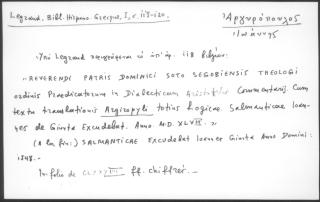 Legrand, Bibl. Hispano-Grecque, I, σ. 119-120.
Ἀργυρόπουλος
Ἰωάννης
Legrand ὑπ' ἀρ. 118
"REVERENDI PATRIS DOMINICI SOTO SEGOBIENSIS THEOLOGI
ordinis Praedicatorum in Dialecticam Aristotelis Commentarii. Cum
textu translationis Argizopyli totius Logicae. Salmanticae Ioan-
nes de Giunta Excudebat. Anno. M.D. XLVIII. »
(A la fin:) SALMANTICAE Excudebat Ioannes Giunta Anno Domini:
1548. _
In folio de ff. chiffrés. _